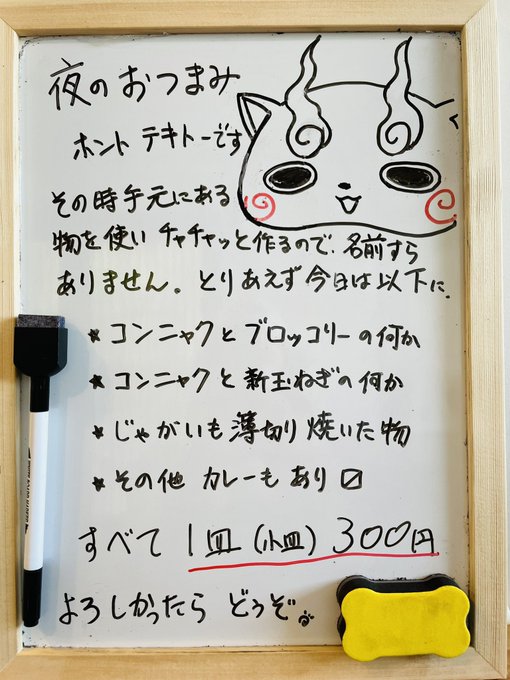 夜のおつまみ
ホント テキトーです
その時手元にある
物を使い チャチャッと作るので、名前すら
ありません。とりあえず今日は以下に。
★コンニャクとブロッコリーの何か
★コンニャクと新玉ねぎの何か
★じゃがいも薄切り焼いた物
★その他 カレーも あり〼
すべて 1皿(小皿) 300円
よろしかったら どうぞ。